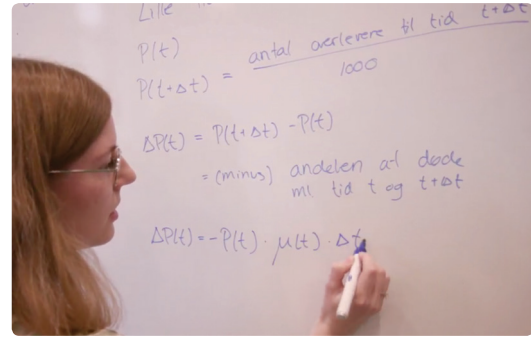 Lille
P(t)
P(t+Δt) = antal overlevere til tid t+Δt
1000
ΔP(t) = P(t+Δt) - P(t)
= (minus) andelen af døde
ml tid t og t+Δt
ΔP(t) = -P(t) · μ(t) · Δt